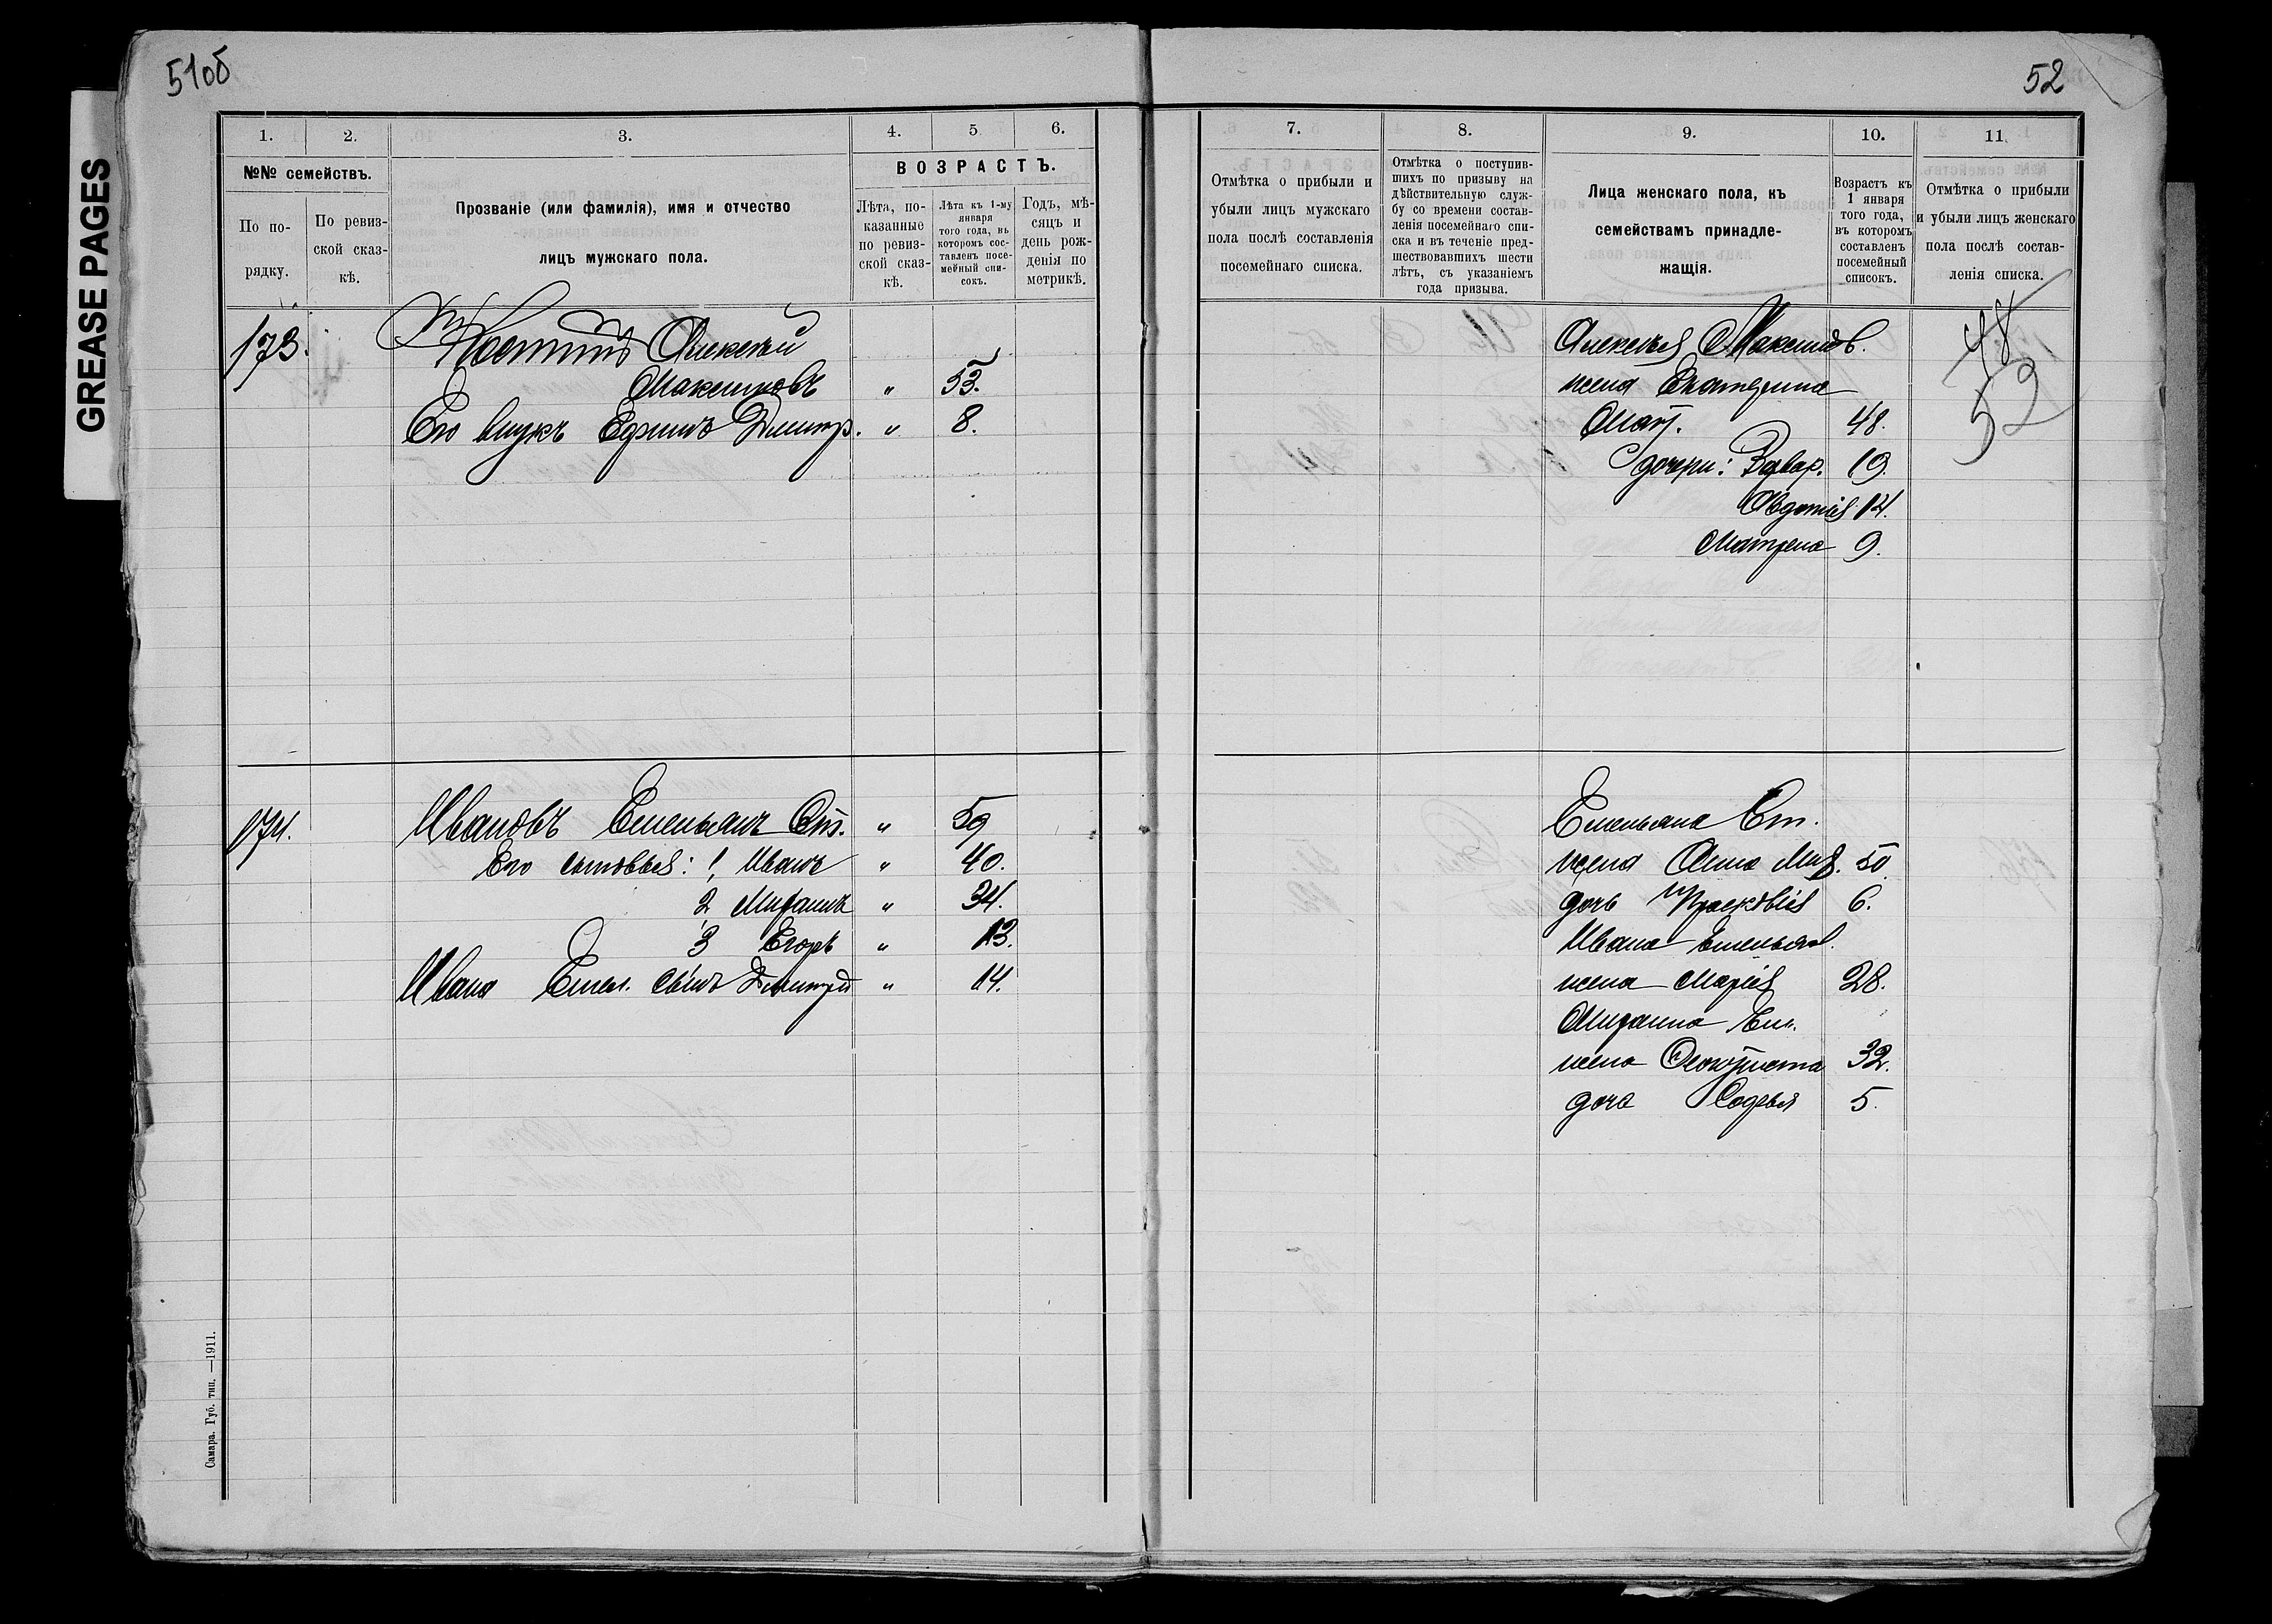 51об
52
GREASE PAGES
1.
2.
3.
4.
5.
6.
№№ семействъ.
По по-
рядку.
По ревиз-
ской сказ-
кѣ.
Прозваніе (или фамилія), имя и отчество
лицъ мужскаго пола.
ВОЗРАСТЪ.
Лѣта, по-
казанные
по ревиз-
ской сказ-
кѣ.
Лѣта къ 1-му
января
того года, въ
которомъ сос-
тавленъ посе-
мейный спи-
сокъ.
Годъ, мѣ-
сяцъ и
день рож-
денія по
метрикѣ.
173. Костинъ Алексѣй
Максимовъ " 53.
Его внукъ Ефимъ Дмитр. " 8.
174. Ивановъ Емельянъ Ст. " 59
Его сыновья: 1, Иванъ " 40.
2, Мифаилъ " 34.
3 Егоръ " 13.
Ивана Емел. сынъ Дмитрій " 14.
Самара. Губ. тип. —1911.
7.
8.
9.
10.
11.
Отмѣтка о прибыли и
убыли лицъ мужскаго
пола послѣ составленія
посемейнаго списка.
Отмѣтка о поступив-
шихъ по призыву на
дѣйствительную служ-
бу со времени состав-
ленія посемейнаго спи-
ска и въ теченіе пред-
шествовавшихъ шести
лѣтъ, съ указаніемъ
года призыва.
Лица женскаго пола, къ
семействамъ принадле-
жащія.
Возрастъ къ
1 января
того года,
въ которомъ
составленъ
посемейный
списокъ.
Отмѣтка о прибыли
и убыли лицъ женскаго
пола послѣ состав-
ленія списка.
Алексѣя Максимов.
жена Екатерина
Мат. 48.
дочери: Варвар. 19.
Авдотія 14.
Матрена 9.
48
52
Емельяна Ст.
жена Анна 50.
дочь Прасковія 6.
Ивана Емельян.
жена Марія 28.
Ем.
жена Феоктиста 32.
дочь Софья 5.